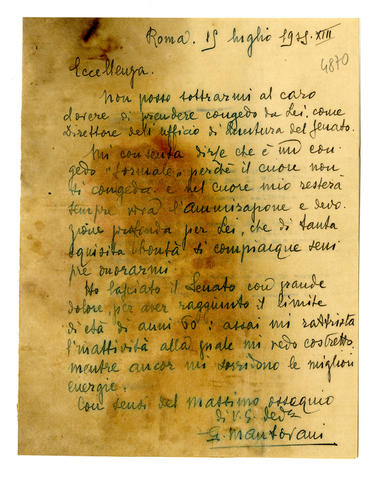 Roma. 15 luglio 1935. XIII
4870
Eccellenza.
Non posso sottrarmi al caro
dovere di prendere congedo da Lei, come
Direttore dell'ufficio di Questura del Senato.
Mi consenta dirle che è un con-
gedo "formale", perchè il cuore non
si congeda: e nel cuore mio resterà
sempre viva l'ammirazione e devo-
zione profonda per Lei, che di tanta
squisita bontà si compiacque sem
pre onorarmi.
Ho lasciato il Senato con grande
dolore, per aver raggiunto il limite
di età di anni 60: assai mi rattrista
l'inattività alla quale mi vedo costretto,
mentre ancor mi sorridono le migliori
energie.
Con sensi del massimo ossequio
di V. E. dev.
G. Mantovani